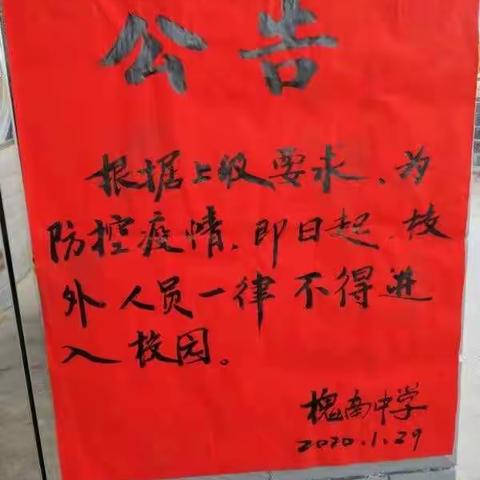 公告
根据上级要求、为
防控疫情,即日起,校
外人员一律不得进
入校园。
槐南中学
2020.1.29